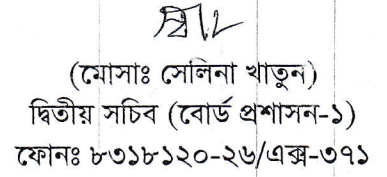 (মোসাঃ সেলিনা খাতুন)
দ্বিতীয় সচিব (বোর্ড প্রশাসন-১)
ফোনঃ ৮৩১৮১২০-২৬/এক্স-৩৭১